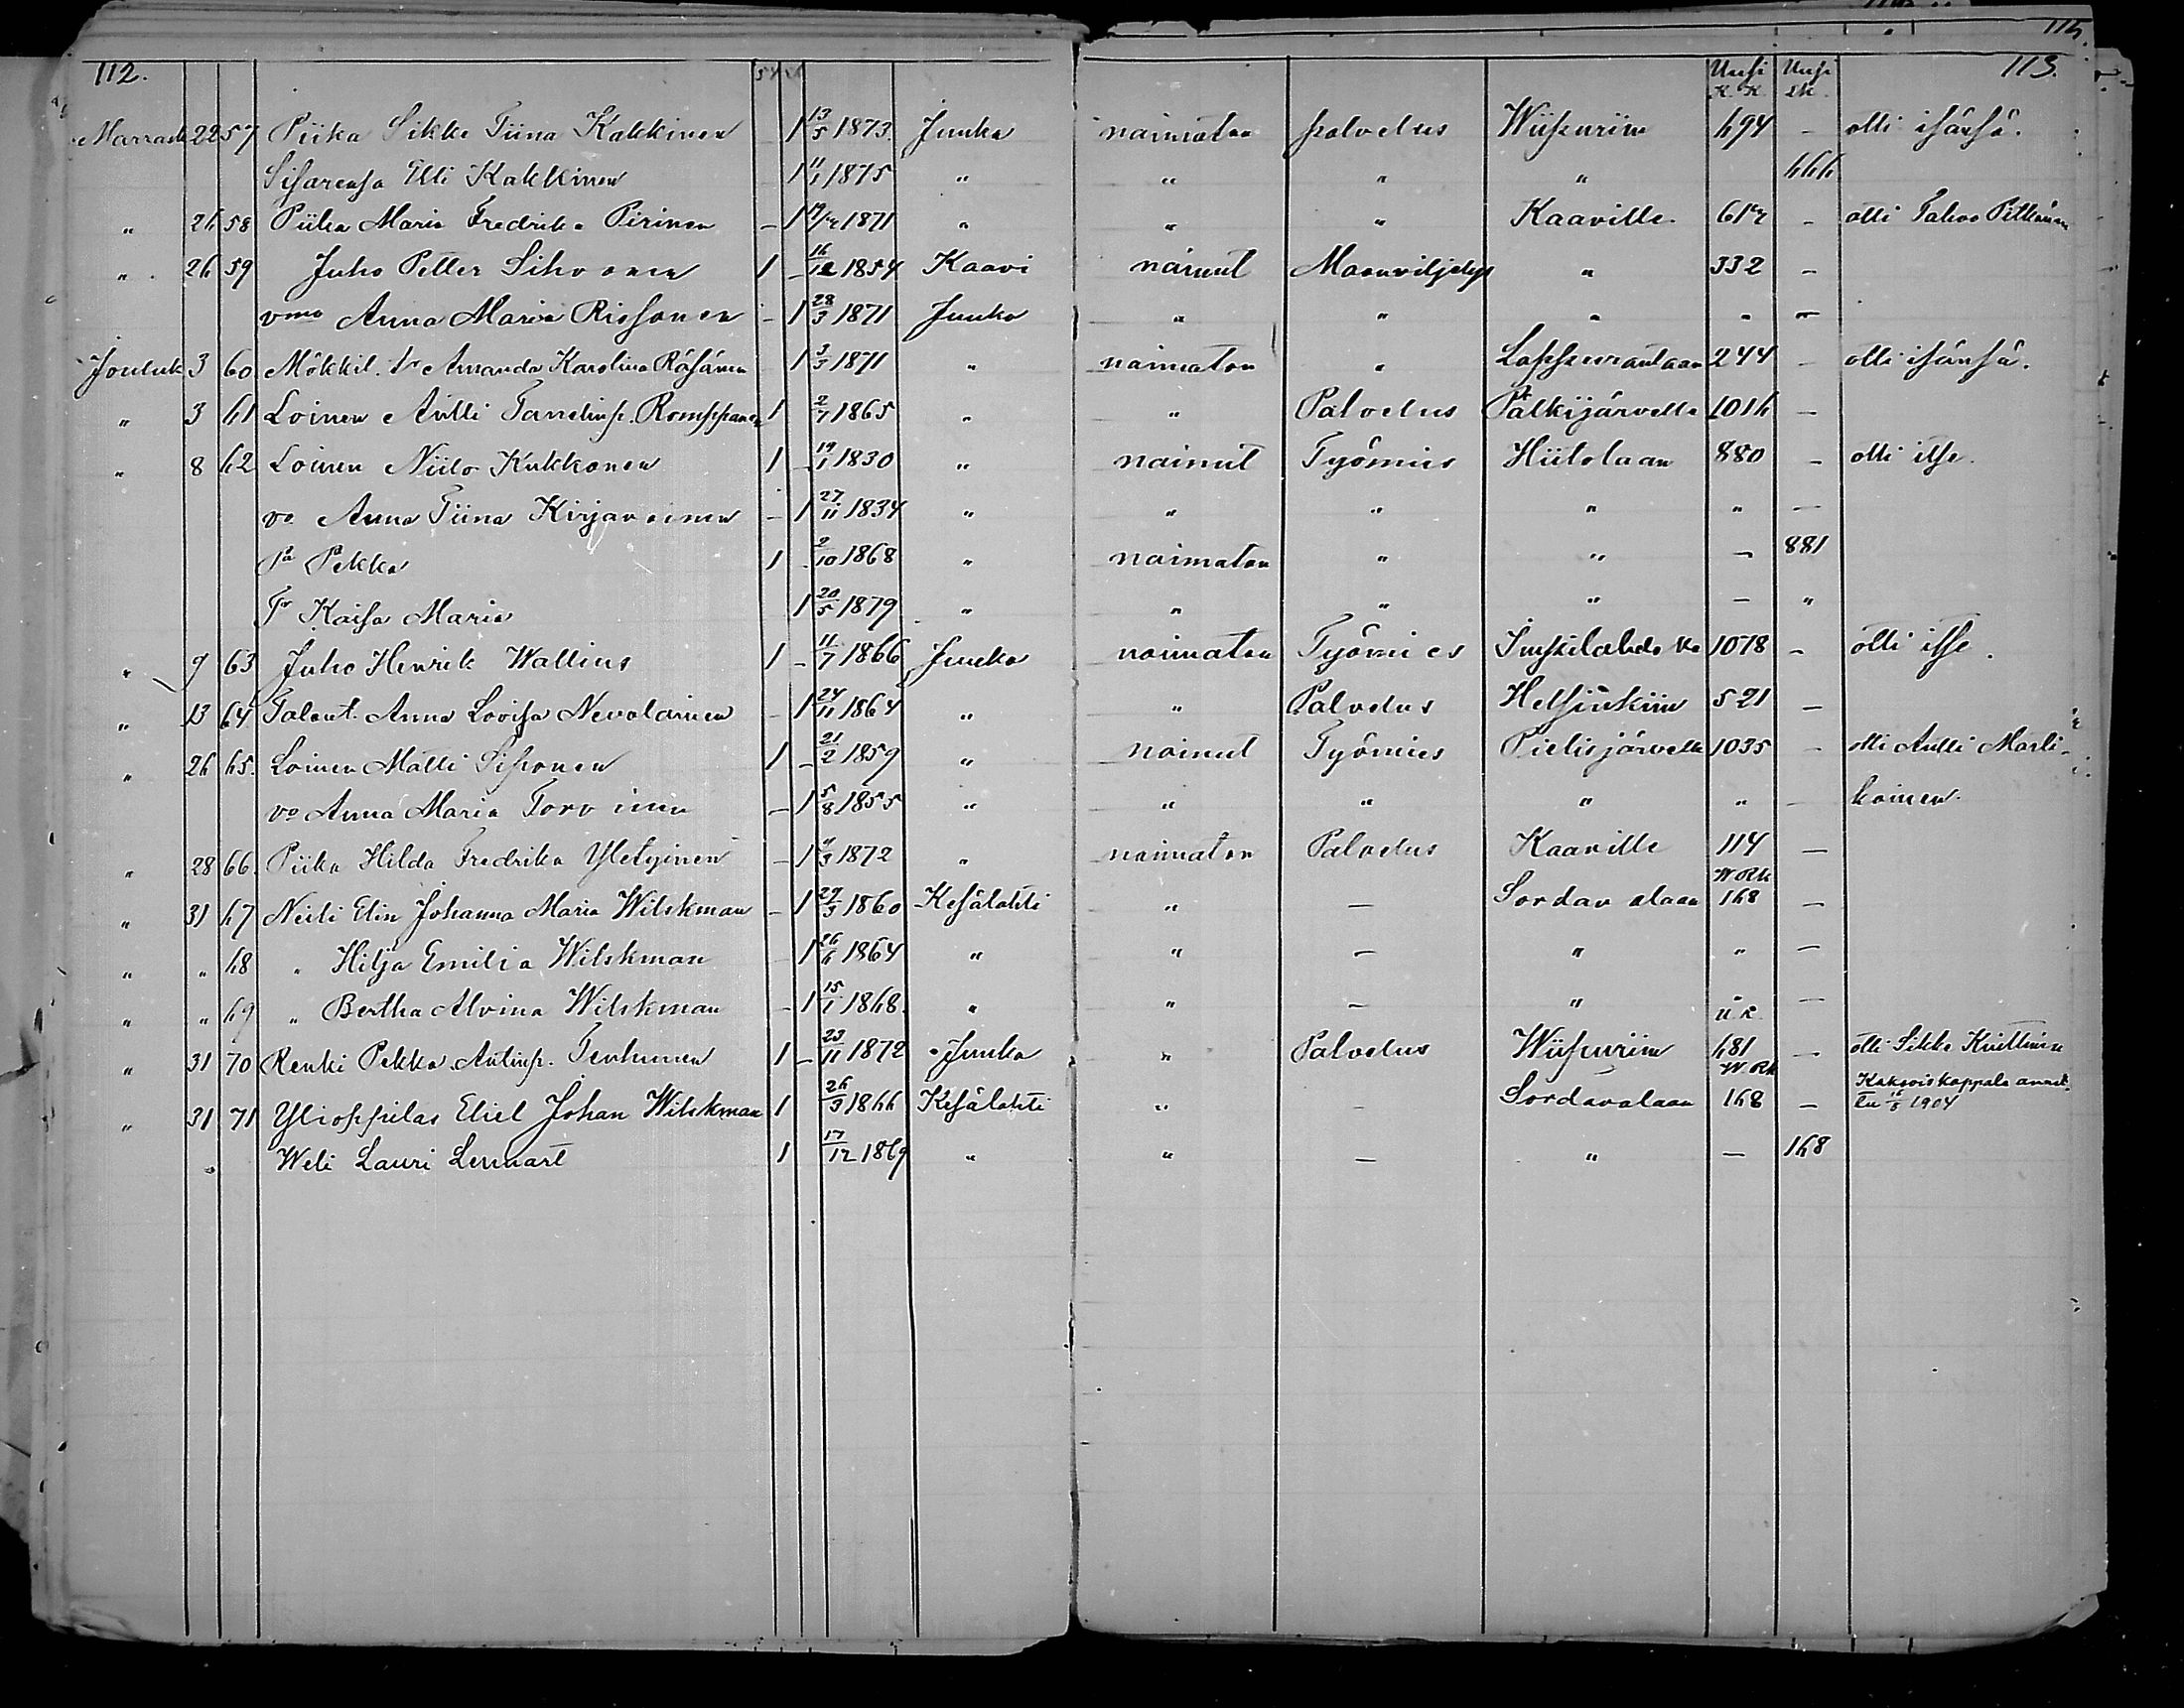 115.
112. Uusi K. K. Uusi Rk. 113.
Marrask 22 57 Piika Sikke Tiina Kakkinen – 1 13/5 1873. Juuka naimaton palvelus Wiipuriin 694 – otti isänsä.
Sisarensa Elli Kakkinen 1 11/1 1875 " " " " 666
" 26 58 Piika Maria Fredrika Pirinen – 1 1871 " " " Kaaville – otti Tahvo Pitkänen
" 26 59 Juho Petter Sihvonen 1 – 16/12 1854 Kaavi nainut Maanviljelys " 332 –
vmo Anna Maria Rissonen – 1 28/3 1871 Juuka " " " " –
Jouluk 3 60 Mökkil. tr Amanda Karolina Räsänen 1 3/3 1871 " naimaton " Lappeenrantaan 244 – otti isänsä.
" 3 61 Loinen Antti Tanelinp. Romppanen 1 2/7 1865 " " Palvelus Pälkijärvelle 1016 –
" 8 62 Loinen Niilo Kukkonen 1 – 19/1 1830 " nainut Työmies Hiitolaan 880 – otti itse.
vo Anna Tiina Kirjavainen – 1 27/11 1834 " " " " " –
Pa Pekka 1 2/10 1868 " naimaton " " – 881
Tr Kaisa Maria 1 20/5 1879 " " " " – "
" 9 63 Juho Henrik Wallius 1 – 11/7 1866 Juuka naimaton Työmies Impilahdelle 1078 – otti itse.
" 13 64 Talont. Anna Loviisa Nevalainen – 1 24/11 1864 " " Palvelus Helsinkiin 521 –
" 26 65. Loinen Matti Sipponen 1 – 21/2 1859 " nainut Työmies Pielisjärvelle 1035 – otti Antti Marti-
vo Anna Maria Torvinen – 1 5/8 1855 " " " " " – kainen.
" 28 66. Piika Hilda Fredrika Yletyinen – 1 1872 " naimaton Palvelus Kaaville 114 –
" 31 67 Neiti Elin Johanna Maria Wilskman – 1 29/3 1860 Kesälahti " – Sordavalaan W Rk 168 –
" " 68 " Hilja Emilia Wilskman 1 26/6 1864 " " – " " –
" " 69 " Bertha Alvina Wilskman – 1 15/1 1868. " " – " " –
" 31 70 Renki Pekka Antinp. Tenhunen 1 – 23/11 1872 Juuka " Palvelus Wiipuriin u.k. 681 – otti Sikke Kuittinen
" 31 71 Ylioppilas Eliel Johan Wilskman 1 26/3 1866 Kesälahti " – Sordavalaan W Rk 168 – Kaksoiskappale annet tu 1904
" Weli Lauri Lennart 1 17/12 1869 " " – " – 168